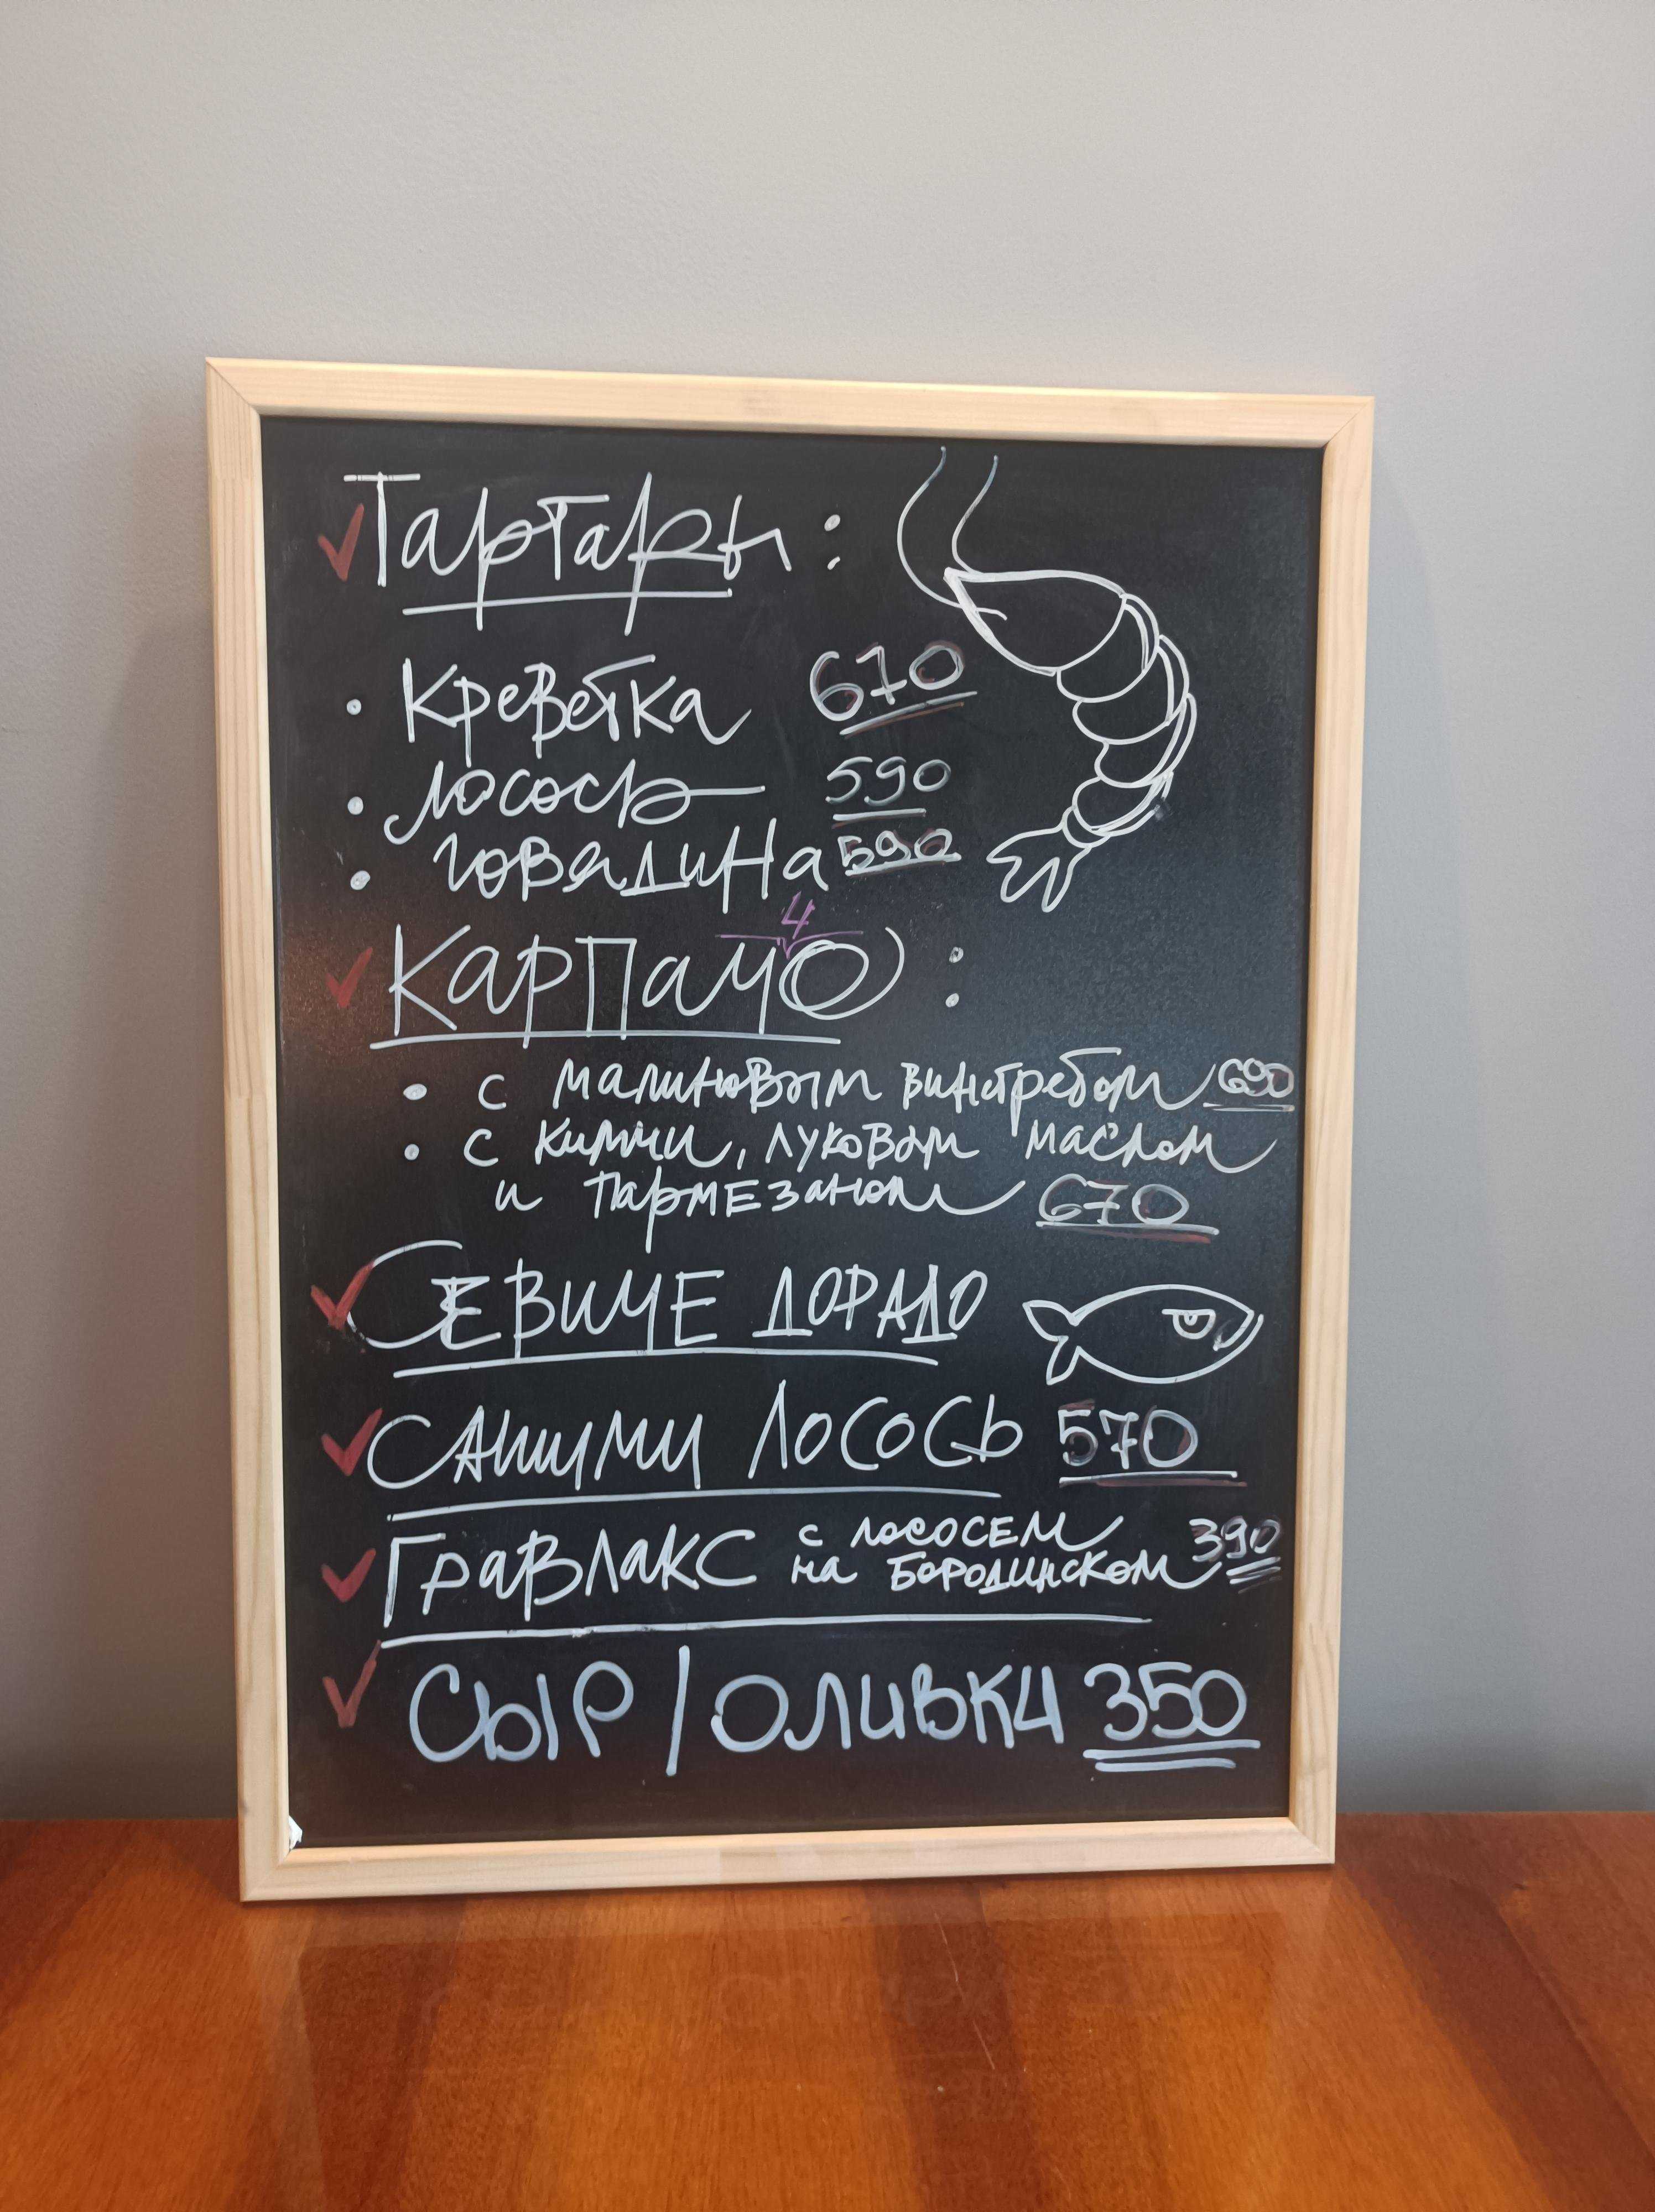 ✓ Тартары:
• Креветка 670
• лосось 590
• говядина 590
4
✓ Карпачо:
• с малиновым винегретом 690
• с кимчи, луковым маслом
и пармезаном 670
✓ СЕВИЧЕ ДОРАДО
✓ САШИМИ ЛОСОСЬ 570
✓ ГРАВЛАКС с лососем
на Бородинском 390
✓ Сыр / оливки 350